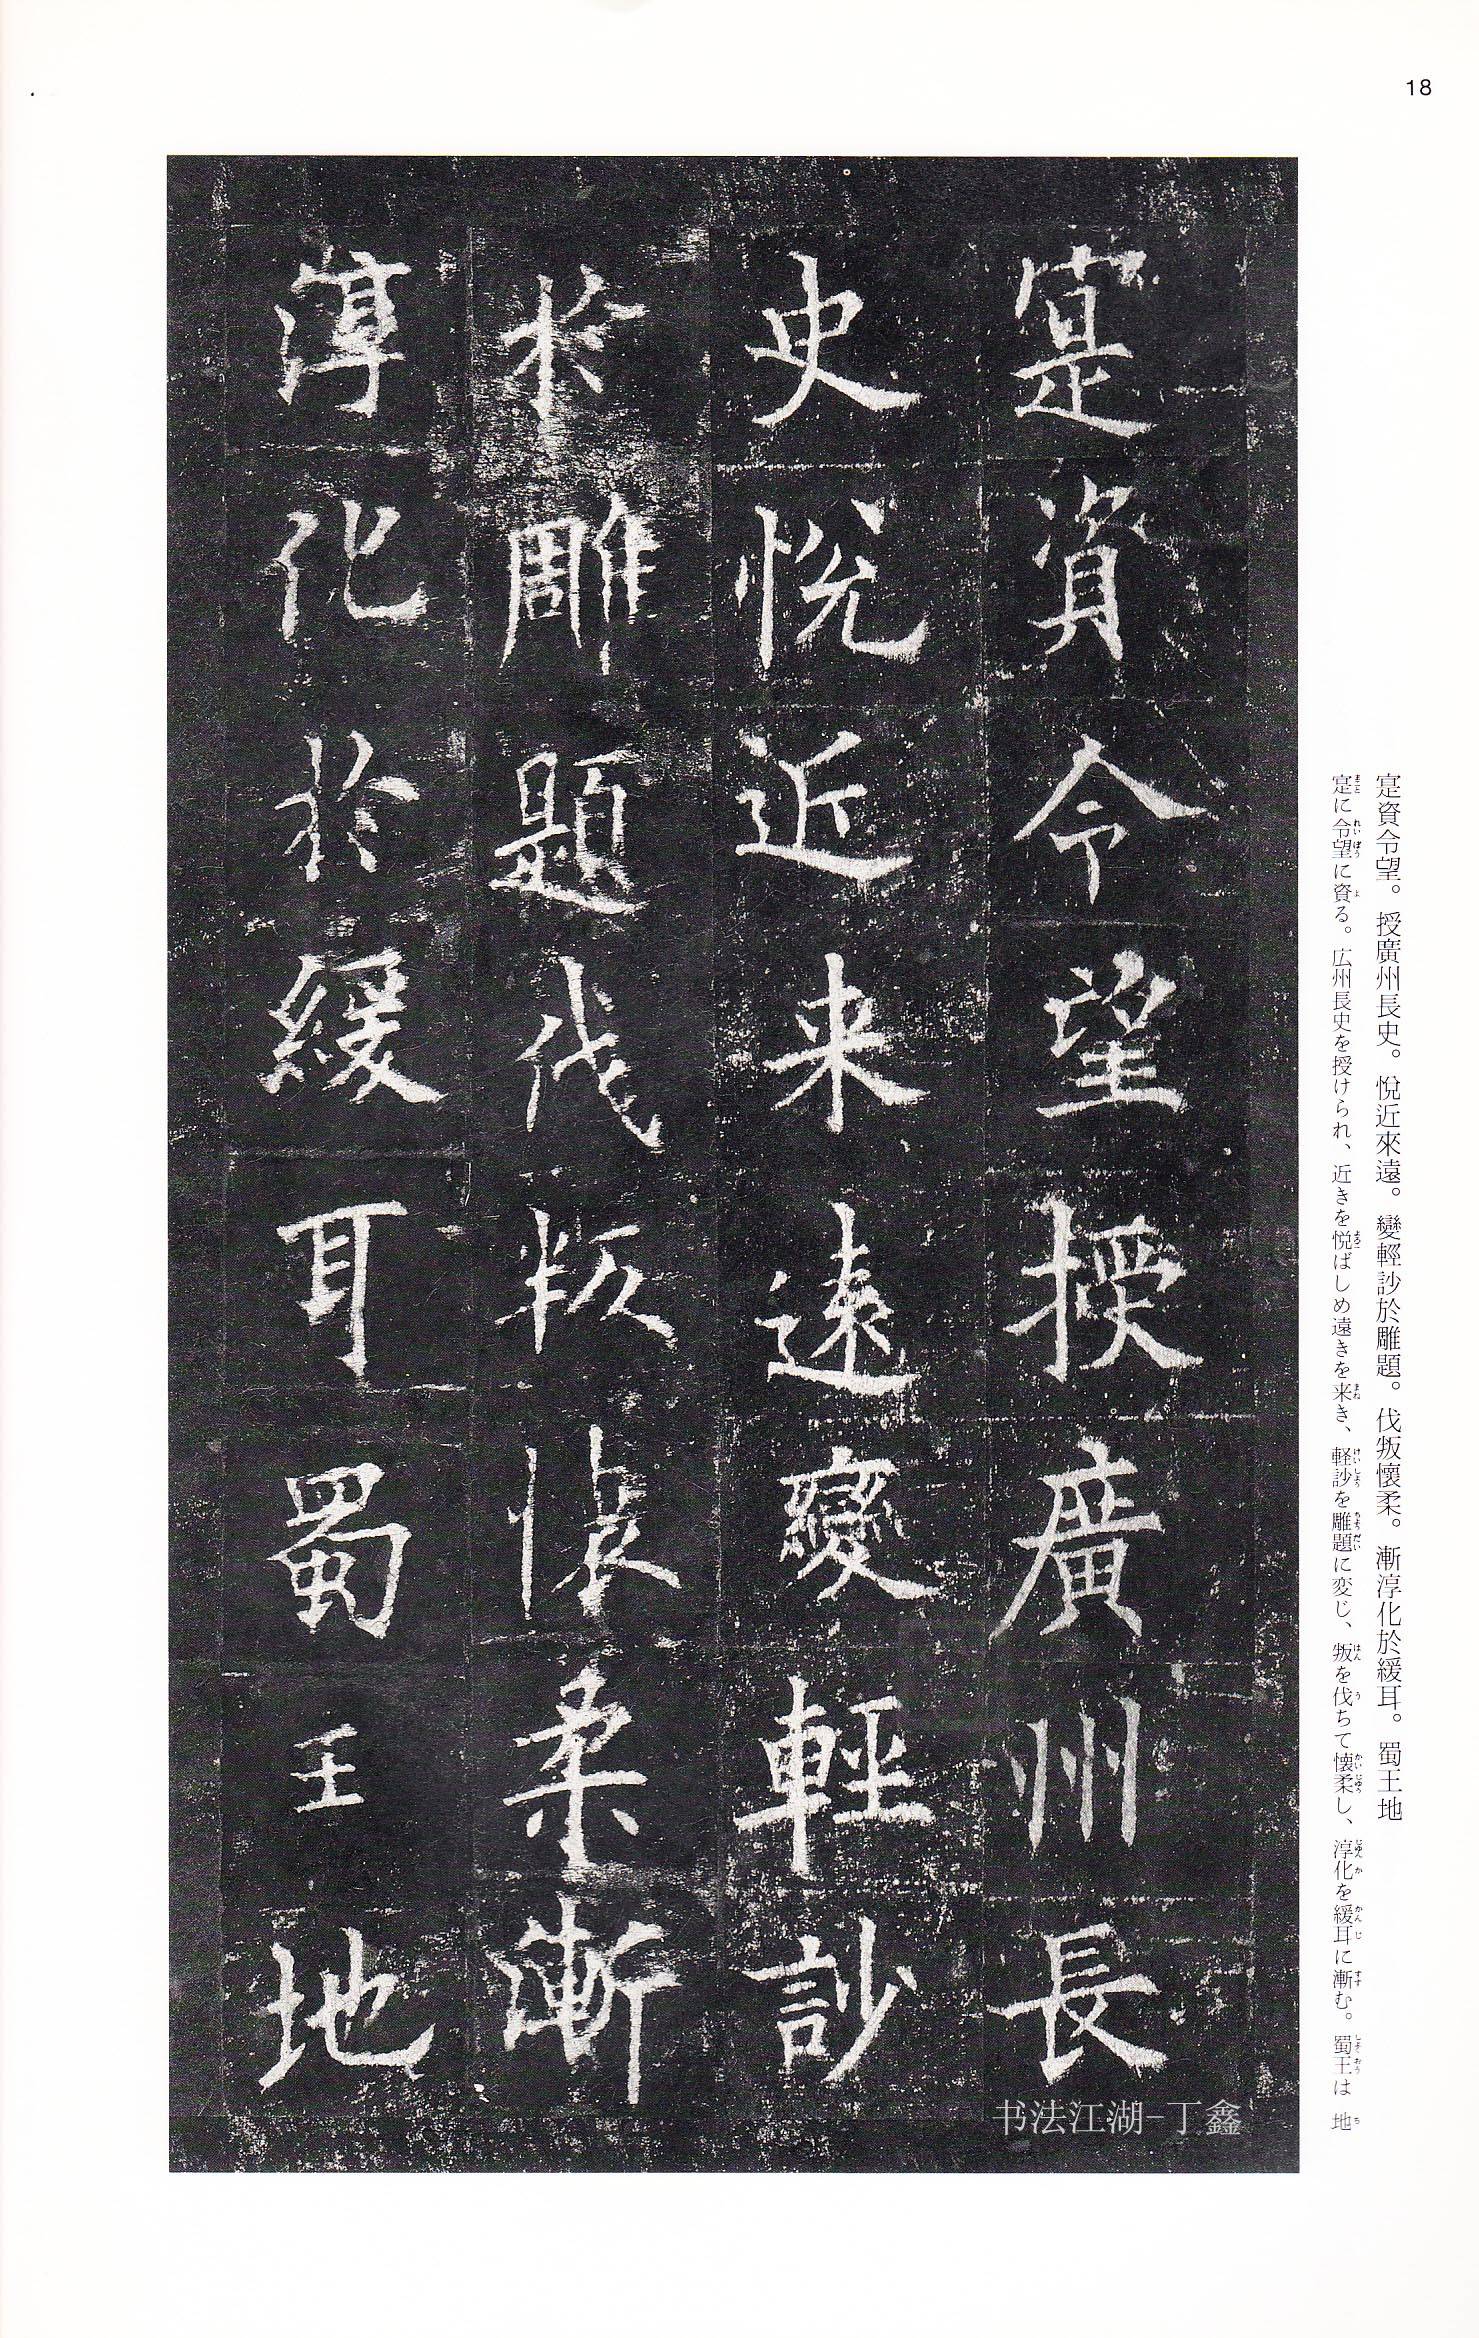 18
寔資令望。授廣州長史。悅近來遠。變輕訬於雕題。伐叛懷柔。漸淳化於緩耳。蜀王地
寔に令望に資る。広州長史を授けられ、近きを悦ばしめ遠きを来き、軽訬を雕題に変じ、叛を伐ちて懐柔し、淳化を緩耳に漸む。蜀王は 地
寔資令望授廣州長
史悅近来遠變輕訬
於雕題伐叛懐柔漸
淳化於緩耳蜀王地
书法江湖-丁鑫